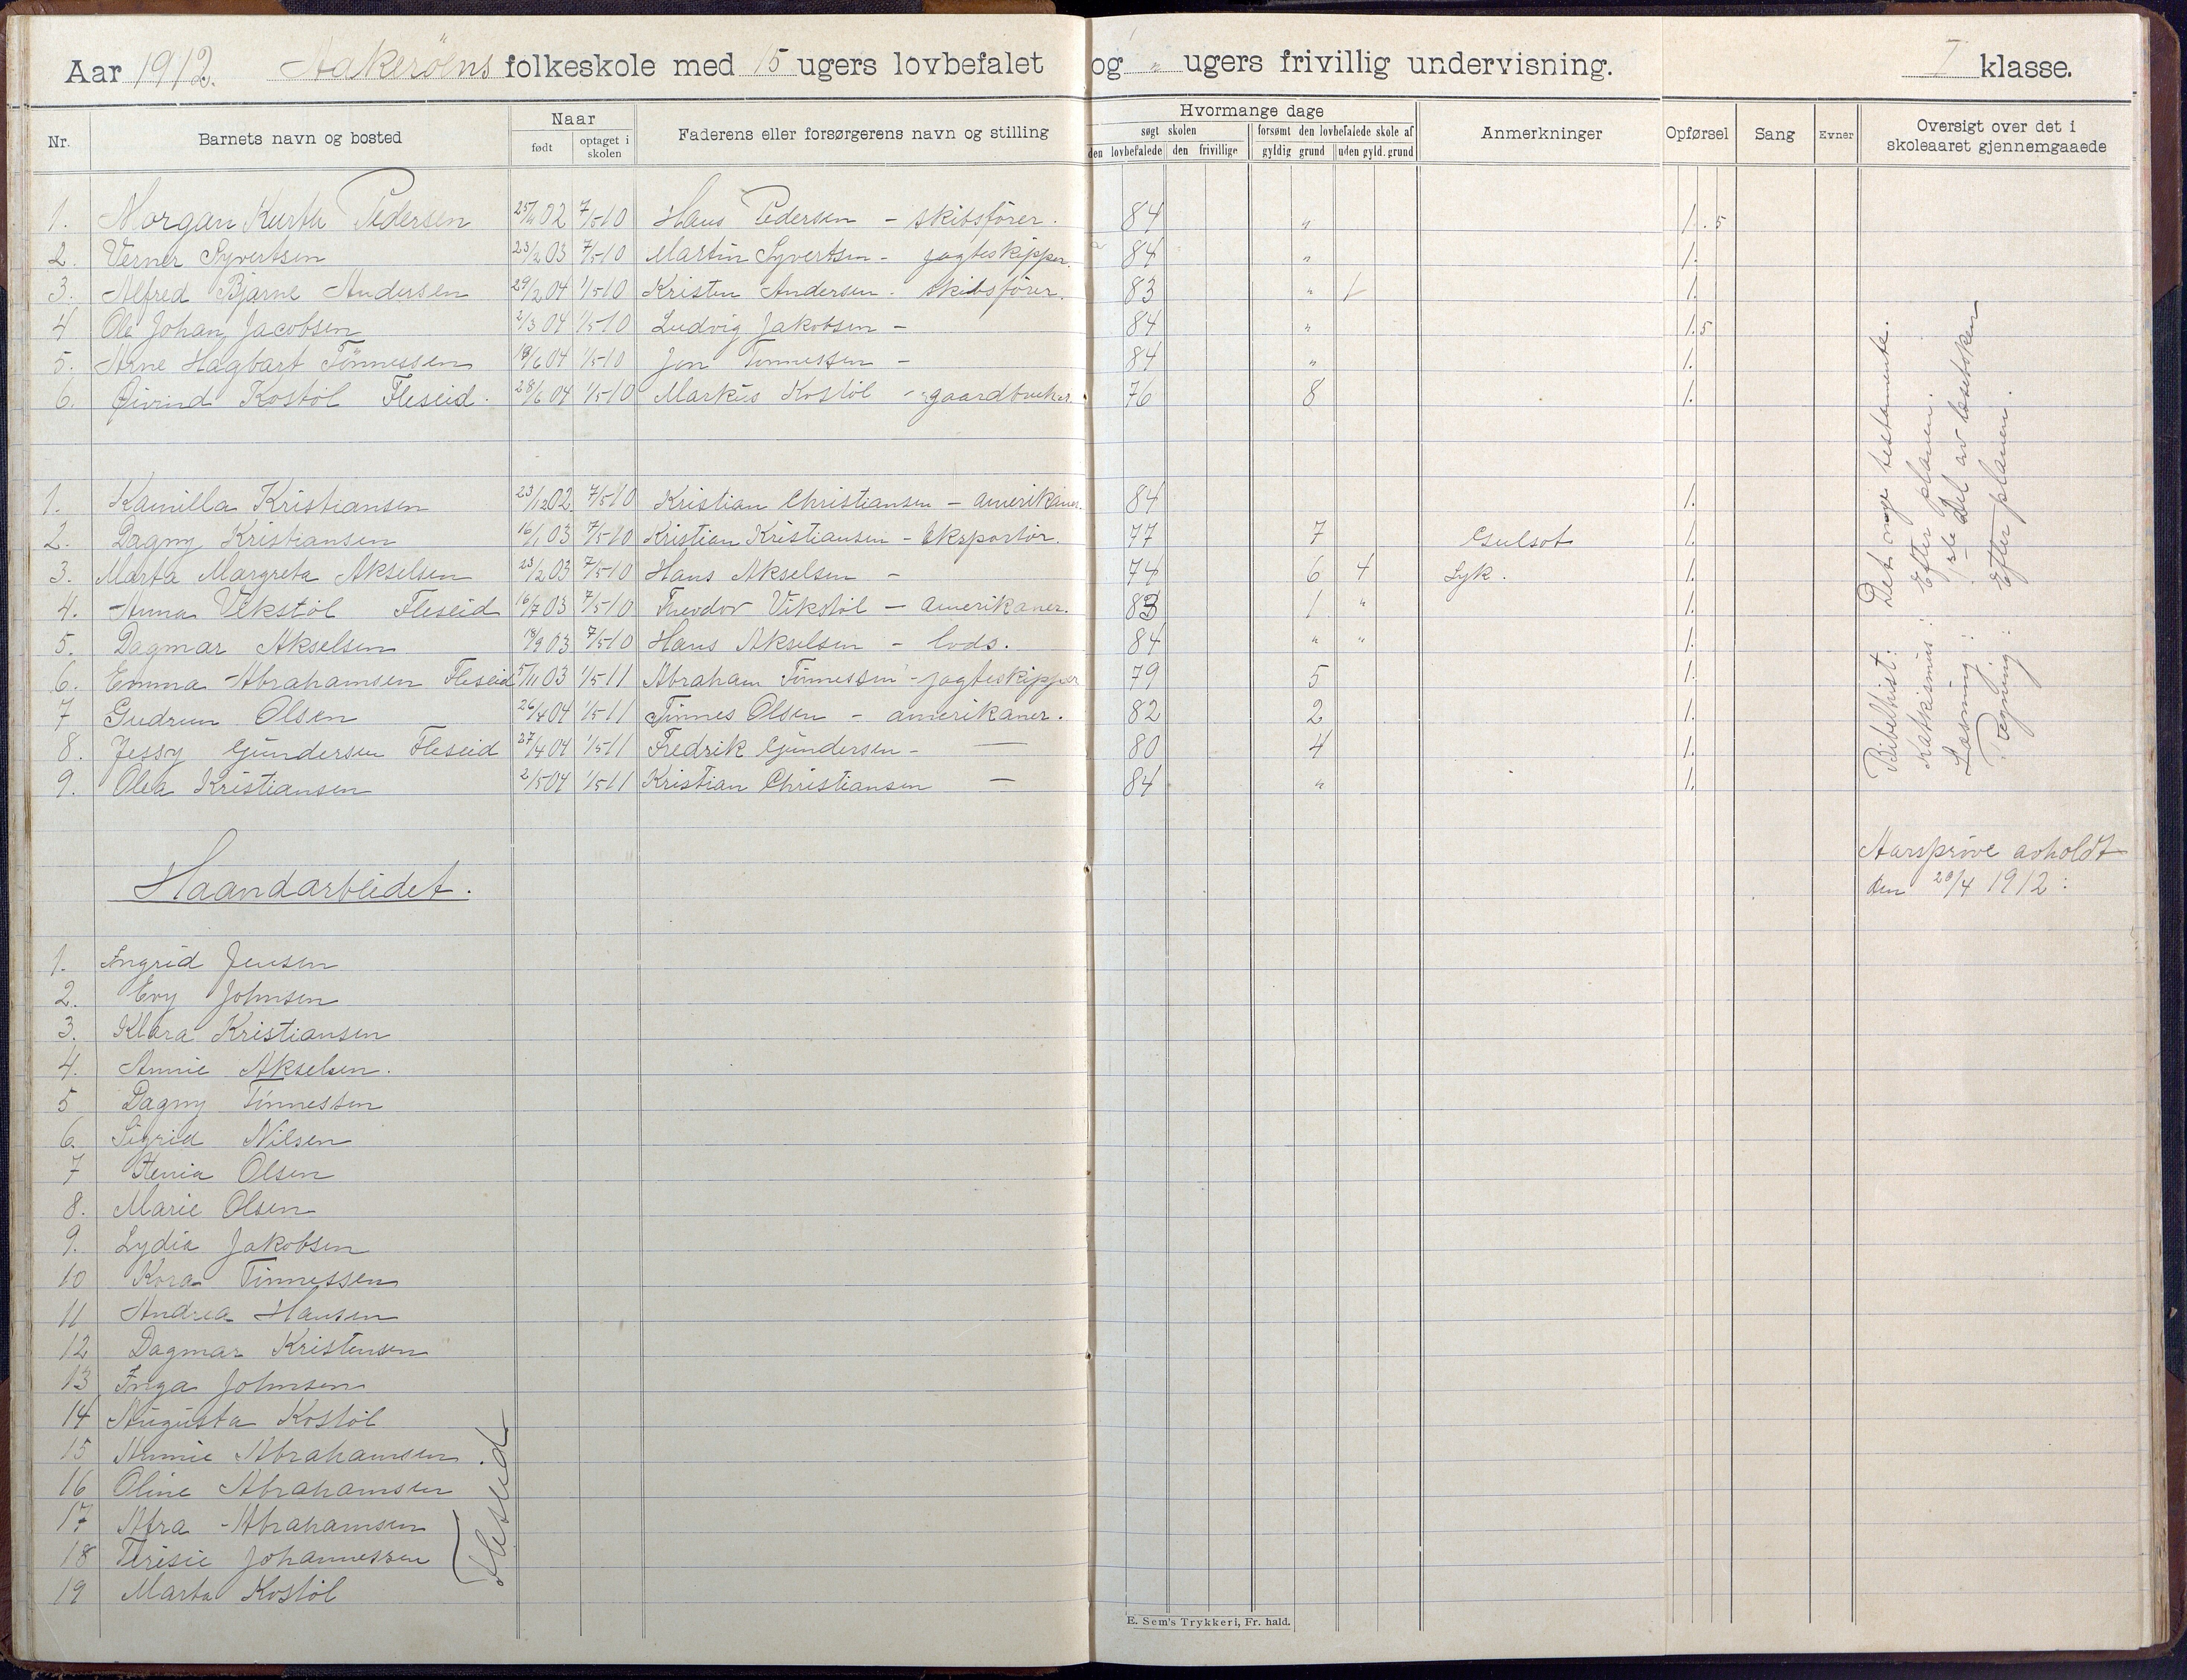 Aar 1912. Aakerøens folkeskole med 15 ugers lovbefalet og " ugers frivillig undervisning. I klasse.
Nr. Barnets navn og bosted Naar født optaget i skolen Faderens eller forsørgerens navn og stilling Hvormange dage søgt skolen den lovbefalede den frivillige forsømt den lovbefalede skole af gyldig grund uden gyld. grund Anmerkninger Opførsel Sang Evner Oversigt over det i skoleaaret gjennemgaaede
1. Morgan Kurth Pedersen 25/11 02 7/5 10 Hans Pedersen - skibsfører. 84 " 1.5
2. Verner Syvertsen 23/2 03 7/5 10 Martin Syvertsen - jagteskipper. 84 " 1.
3. Alfred Bjarne Andersen 29/2 04 1/5 10 Kristen Andersen - skibsfører. 83 " 1 1.
4 Ole Johan Jacobsen 2/3 04 1/5 10 Ludvig Jakobsen - 84 " 1.5
5. Arne Hagbart Tønnessen 18/6 04 1/5 10 Jen Tønnessen - 84 " 1.
6. Øivind Kostøl Fleseid. 28/6 04 1/5 10 Markus Kostøl - gaardbruker. 76 8 1.
1. Kamilla Kristiansen 23/12 02 7/5 10 Kristian Christiansen - amerikaner. 84 1.
2. Dagny Kristiansen 16/1 03 7/5 10 Kristian Kristiansen - Eksportør. 77 7 Gulsot 1.
3. Marta Margreta Akselsen 23/2 03 7/5 10 Hans Akselsen - 74 6 4 Syk. 1.
4. Anna Vikstøl Fleseid 16/7 03 7/5 10 Theodor Vikstøl - amerikaner. 83 1 " 1.
5. Dagmar Akselsen 18/9 03 7/5 10 Hans Akselsen - lods. 84 " " 1.
6. Emma Abrahamsen Fleseid 5/11 03 1/5 11 Abraham Tønnessen - jagteskipper 79 5 1.
7 Gudrun Olsen 26/4 04 1/5 11 Tønnes Olsen - amerikaner. 82 2 1.
8. Jessy Gundersen Fleseid 27/4 04 1/5 11 Fredrik Gundersen - — 80 4 1.
9. Olea Kristiansen 2/5 04 1/5 11 Kristian Christiansen — 84 " 1.
Bibelhist: Det nye testamente.
Katekismus: Efter planen.
Læsning: 1ste Del av læseboken
Tegning: Efter planen.
Aarsprøve avholdt
den 20/4 1912:
Haandarbeidet.
1. Ingrid Jensen
2. Evy Johnsen
3. Klara Kristiansen
4. Annie Akselsen.
5 Dagny Tønnessen
6. Sigrid Nilsen
7 Henia Olsen
8. Marie Olsen
9. Lydia Jakobsen
10 Kora Tønnessen
11 Andrea Hansen
12 Dagmar Kristensen
13 Inga Johnsen
14 Augusta Kostøl
15 Annie Abrahamsen
16 Oline Abrahamsen
17 Alra Abrahamsen
18 Terisie Johannessen
19 Marta Kostøl
Fleseid
E. Sem's Trykkeri, Fr. hald.